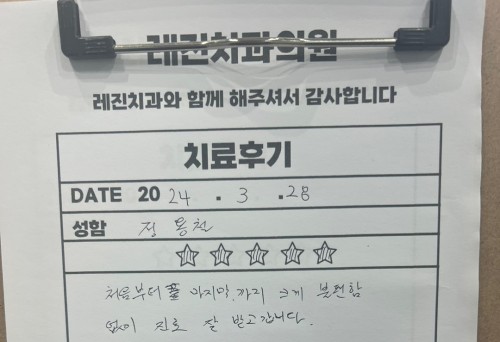 레진치과의원
레진치과와 함께 해주셔서 감사합니다
치료후기
DATE 20 24 . 3 . 28
성함 정 용천
처음부터 마지막까지 크게 불편함
없이 진료 잘 받고갑니다.